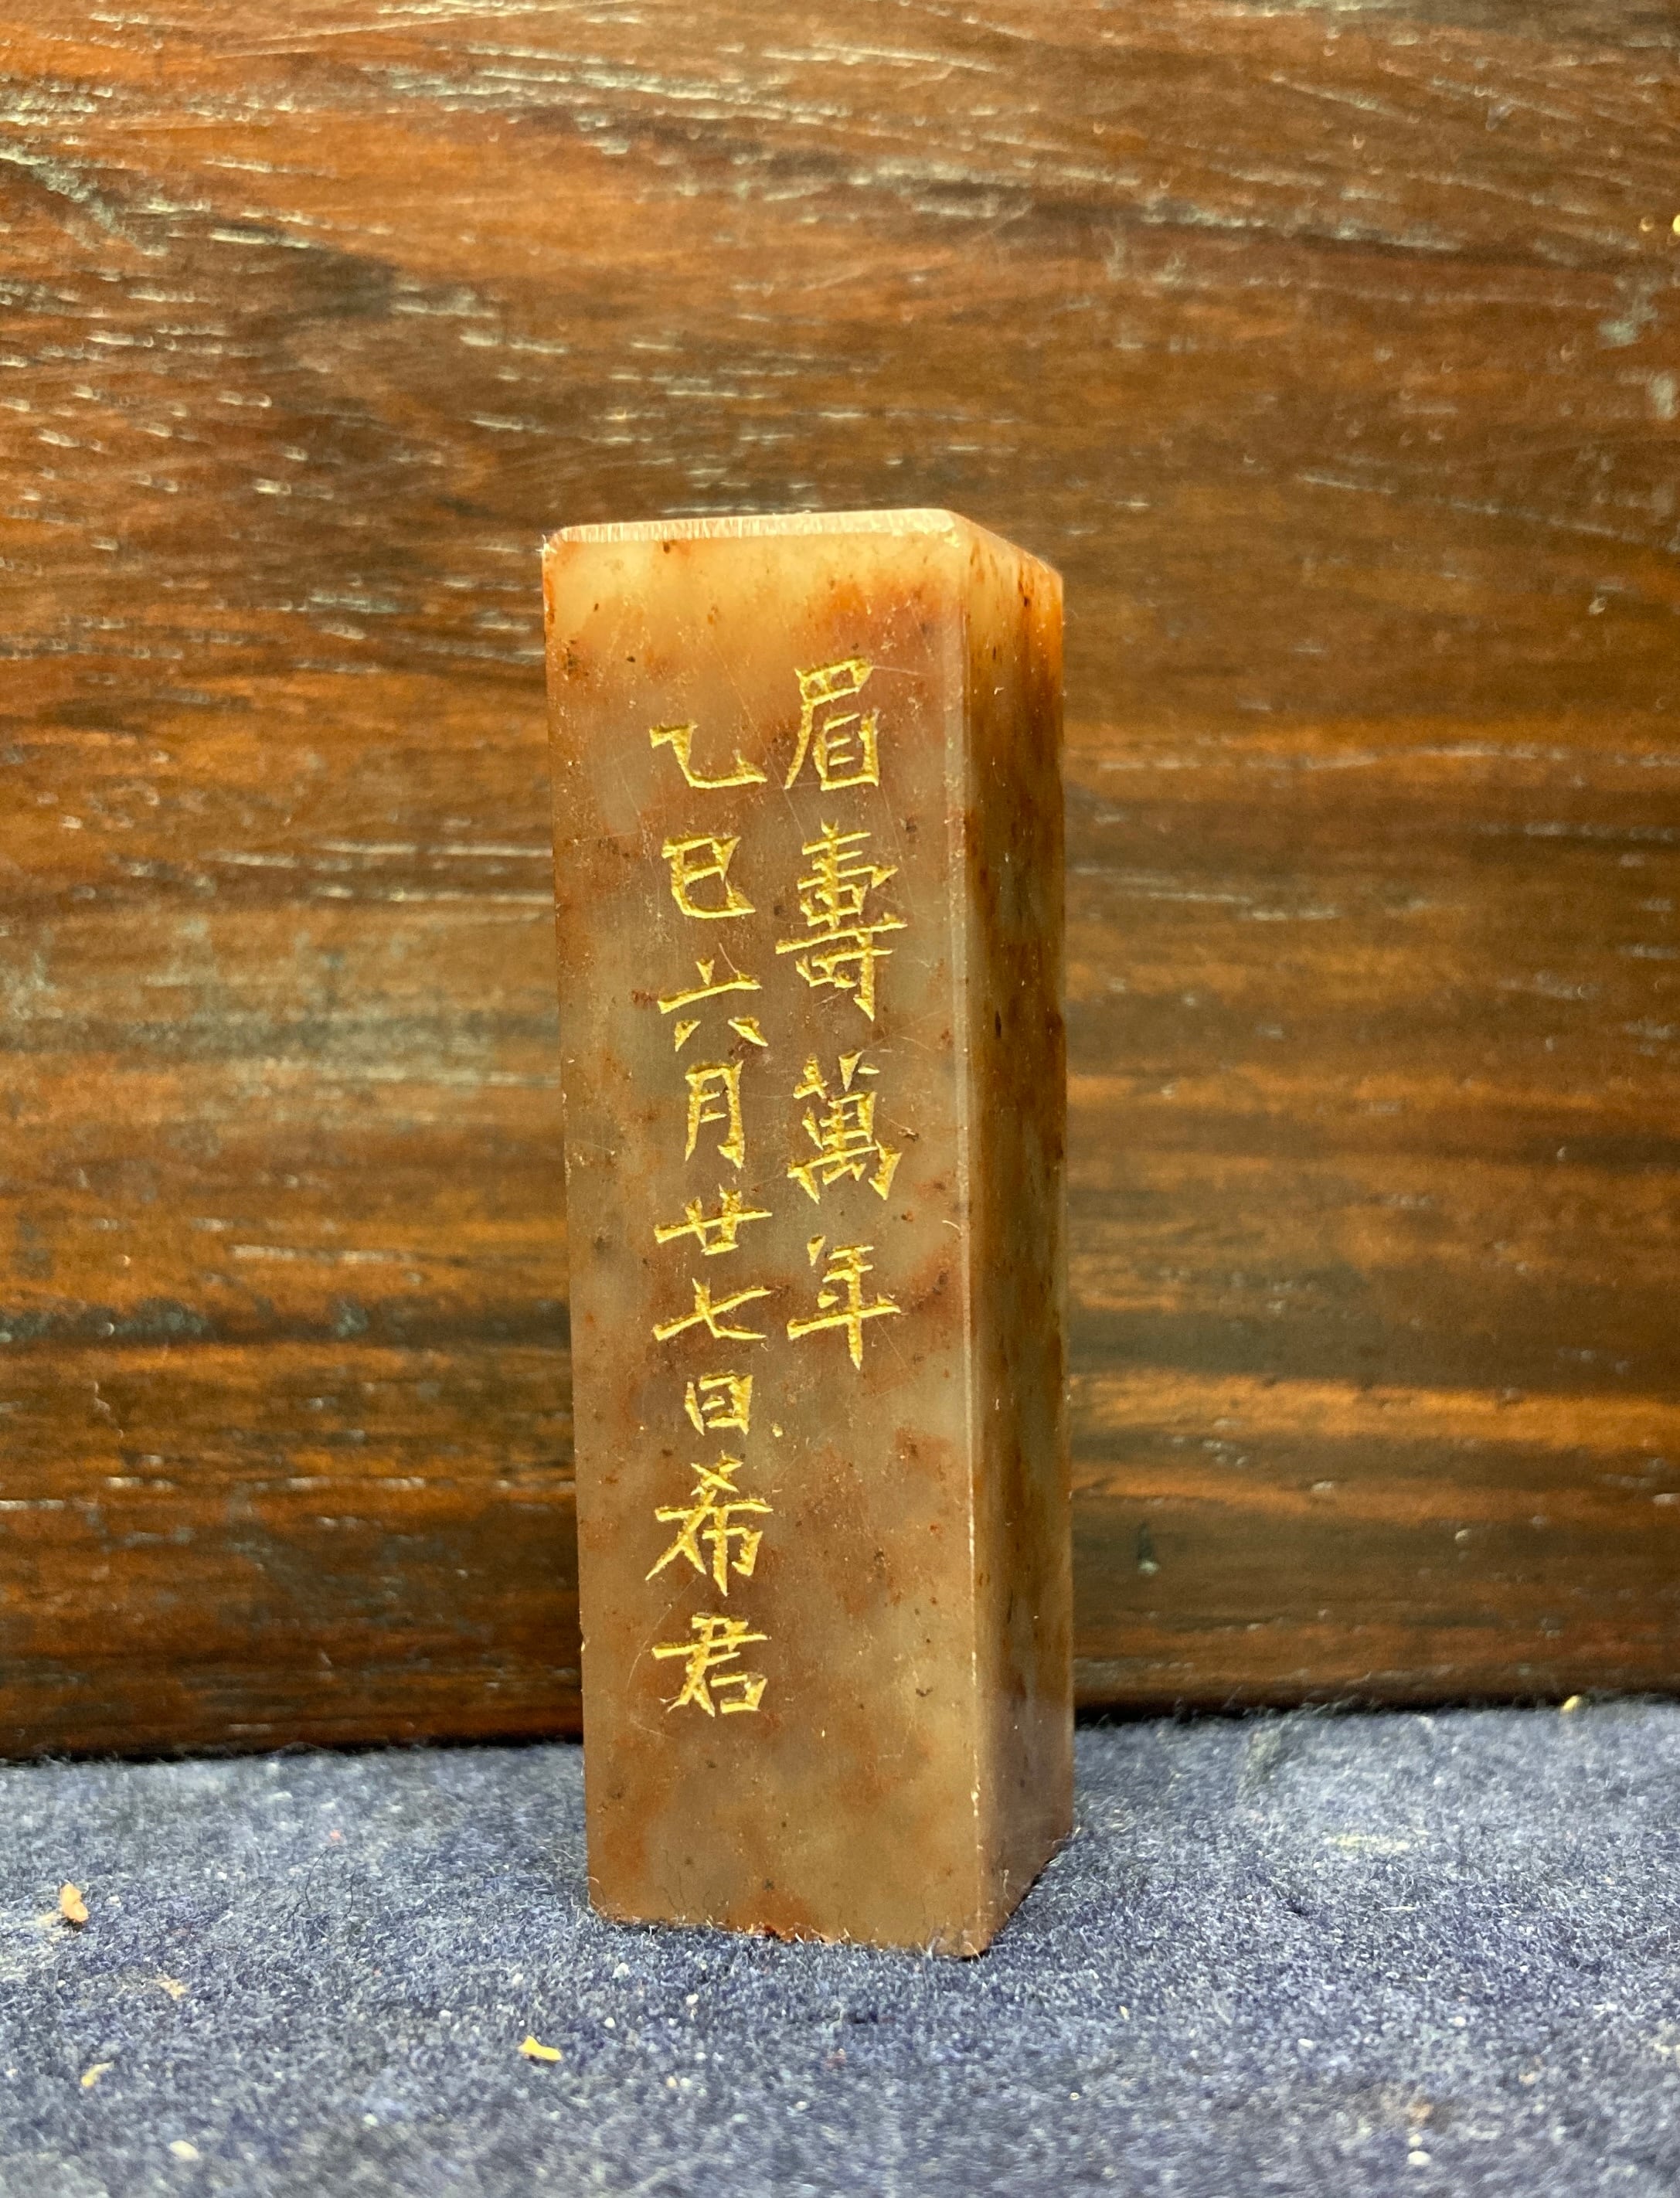 眉壽萬年
乙巳六月廿七日希君